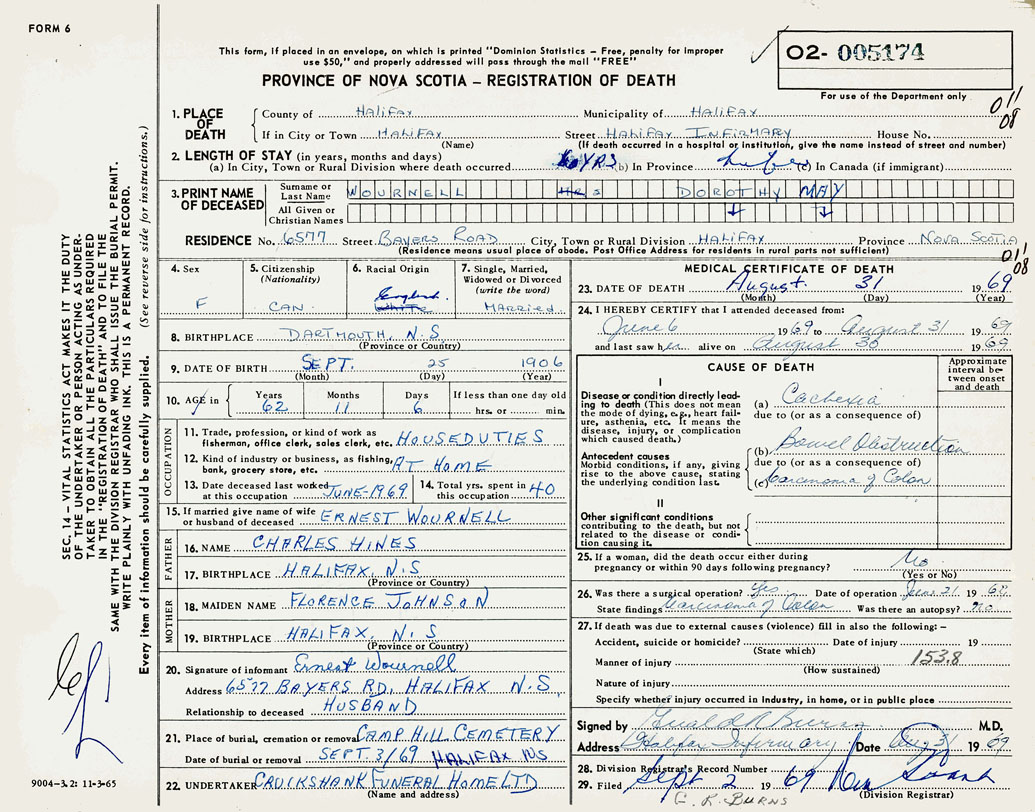 FORM 6
This form, if placed in an envelope, on which is printed "Dominion Statistics – Free, penalty for improper
use $50," and properly addressed will pass through the mail "FREE"
PROVINCE OF NOVA SCOTIA – REGISTRATION OF DEATH
02- 005174
For use of the Department only
011
08
1. PLACE OF DEATH
County of HALIFAX Municipality of HALIFAX
If in City or Town HALIFAX Street HALIFAX INFIRMARY House No.
(Name) (If death occurred in a hospital or institution, give the name instead of street and number)
2. LENGTH OF STAY (in years, months and days)
(a) In City, Town or Rural Division where death occurred YRS (b) In Province (c) In Canada (if immigrant)
3. PRINT NAME OF DECEASED
Surname or Last Name WOURNELL MRS DOROTHY MAY
All Given or Christian Names
RESIDENCE No. 6577 Street BAYERS ROAD City, Town or Rural Division HALIFAX Province NOVA SCOTIA
(Residence means usual place of abode. Post Office Address for residents in rural parts not sufficient)
011
08
4. Sex F
5. Citizenship (Nationality) CAN.
6. Racial Origin England White
7. Single, Married, Widowed or Divorced (write the word) MARRIED
8. BIRTHPLACE DARTMOUTH, N.S
(Province or Country)
9. DATE OF BIRTH SEPT. 25 1906
(Month) (Day) (Year)
10. AGE in Years 62 Months 11 Days 6 If less than one day old hrs. or min.
OCCUPATION
11. Trade, profession, or kind of work as fisherman, office clerk, sales clerk, etc. HOUSEDUTIES
12. Kind of industry or business, as fishing, bank, grocery store, etc. AT HOME
13. Date deceased last worked at this occupation JUNE-1969 14. Total yrs. spent in this occupation 40
15. If married give name of wife or husband of deceased ERNEST WOURNELL
FATHER
16. NAME CHARLES HINES
17. BIRTHPLACE HALIFAX, N.S
(Province or Country)
MOTHER
18. MAIDEN NAME FLORENCE JOHNSON
19. BIRTHPLACE HALIFAX, N.S
(Province or Country)
20. Signature of informant Ernest Wournell
Address 6577 BAYERS RD, HALIFAX N.S
Relationship to deceased HUSBAND
21. Place of burial, cremation or removal CAMP HILL CEMETERY
Date of burial or removal SEPT. 3/69 HALIFAX NS
22. UNDERTAKER CRUIKSHANK FUNERAL HOME LTD
(Name and address)
MEDICAL CERTIFICATE OF DEATH
23. DATE OF DEATH August 31 1969
(Month) (Day) (Year)
24. I HEREBY CERTIFY that I attended deceased from:
June 6 1969 to August 31 1969
and last saw her alive on August 30 1969
CAUSE OF DEATH
Approximate interval between onset and death
I
Disease or condition directly leading to death (This does not mean the mode of dying, e.g., heart failure, asthenia, etc. It means the disease, injury, or complication which caused death.)
(a) Cachexia
due to (or as a consequence of)
Antecedent causes
Morbid conditions, if any, giving rise to the above cause, stating the underlying condition last.
(b) Bowel Obstruction
due to (or as a consequence of)
(c) Carcinoma of Colon
II
Other significant conditions contributing to the death, but not related to the disease or condition causing it.
25. If a woman, did the death occur either during pregnancy or within 90 days following pregnancy? No
(Yes or No)
26. Was there a surgical operation? Yes Date of operation June 21 19
State findings Carcinoma of Colon Was there an autopsy? no
27. If death was due to external causes (violence) fill in also the following: –
Accident, suicide or homicide? Date of injury 19
(State which)
Manner of injury 153.8
(How sustained)
Nature of injury
Specify whether injury occurred in industry, in home, or in public place
Signed by Burns M.D.
Address Halifax Infirmary Date Aug 31 1969
28. Division Registrar's Record Number
29. Filed Sept 2 1969
(Division Registrar)
G. R. BURNS
SEC. 14 – VITAL STATISTICS ACT MAKES IT THE DUTY
OF THE UNDERTAKER OR PERSON ACTING AS UNDER-
TAKER TO OBTAIN ALL THE PARTICULARS REQUIRED
IN THE "REGISTRATION OF DEATH" AND TO FILE THE
SAME WITH THE DIVISION REGISTRAR WHO SHALL ISSUE THE BURIAL PERMIT.
WRITE PLAINLY WITH UNFADING INK. THIS IS A PERMANENT RECORD.
Every item of information should be carefully supplied. (See reverse side for instructions.)
9004–3.2: 11-3-65